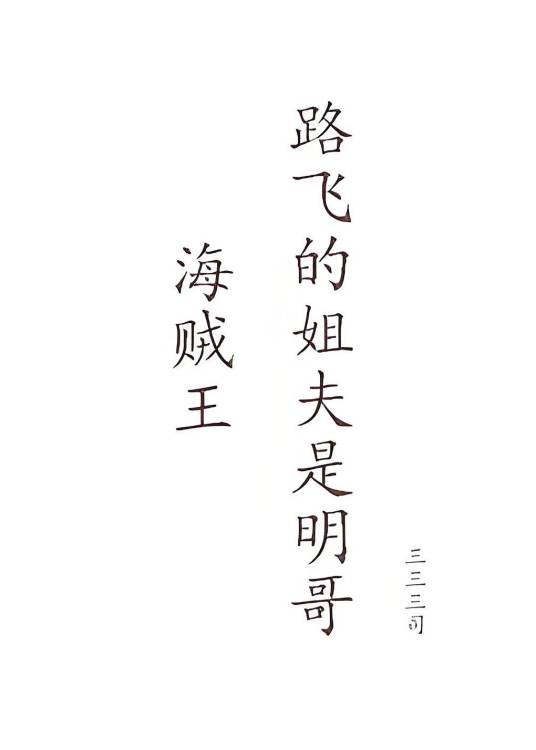 三三三司
路飞的姐夫是明哥
海贼王